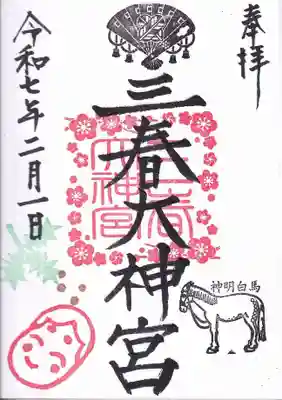 奉拝
三春大神宮
三春大神宮
神明白馬
令和七年二月一日